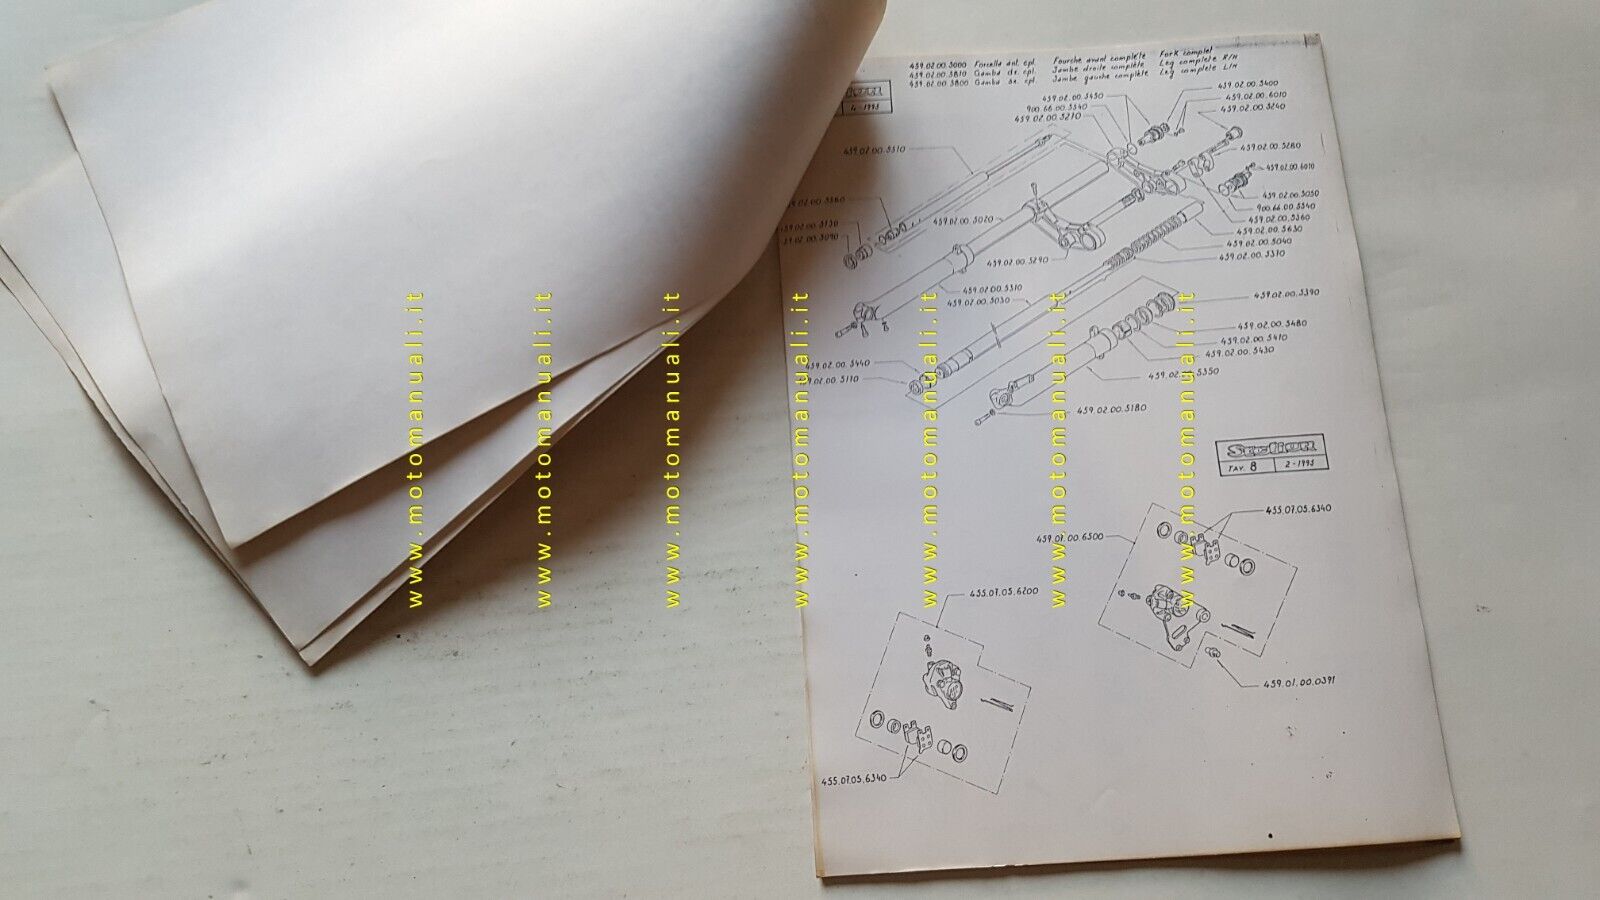 459.02.00.5000 Forcella ant. cpl. Fourche avant complète Fork complet
459.02.00.5810 Gamba dx. cpl. Jambe droite complète Leg complete R/H
459.02.00.5800 Gamba sx. cpl. Jambe gauche complète Leg complete L/H
4-1995
459.02.00.5400
459.02.00.5450
459.02.00.6010
900.66.00.5540
459.02.00.5240
459.02.00.5210
459.02.00.5510
459.02.00.5280
459.02.00.6010
459.02.00.5050
900.66.00.5540
459.02.00.5560
459.02.00.5020
459.02.00.5630
459.02.00.5040
459.02.00.5290
459.02.00.5370
459.02.00.5310
459.02.00.5030
459.02.00.5390
459.02.00.5480
459.02.00.5410
459.02.00.5430
459.02.00.5440
459.02.00.5350
459.02.00.5180
Section
TAV. 8 2-1995
455.07.05.6340
459.07.00.6500
455.07.05.6200
459.01.00.0391
455.07.05.6340
www.motomanuali.it
www.motomanuali.it
www.motomanuali.it
www.motomanuali.it
www.motomanuali.it
www.motomanuali.it
www.motomanuali.it